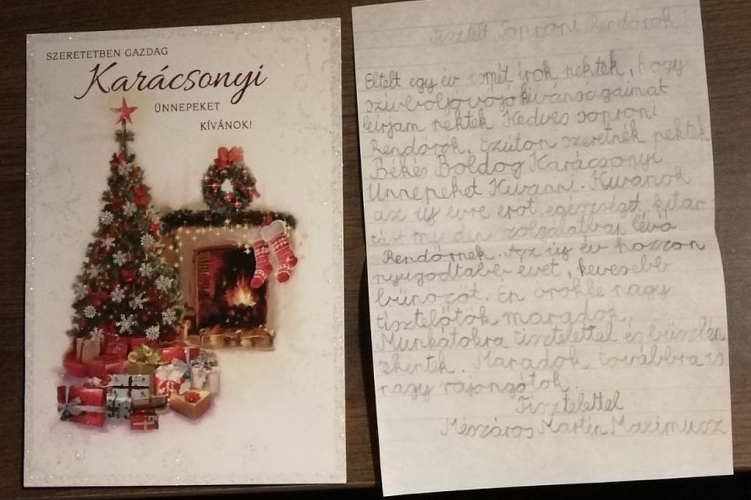 SZERETETBEN GAZDAG
Karácsonyi
ÜNNEPEKET
KÍVÁNOK!
Tisztelt Soproni Rendőrök
Eltelt egy év ismét írok nektek, hogy
szívből jövő jókívánságaimat
leírjam nektek Kedves soproni
Rendőrök. Ezúton szeretnék nektek
Békés Boldog Karácsonyi
Ünnepeket Kívánni. Kívánok
az új évre erőt, egészséget, kitar-
tást minden szolgálatban lévő
Rendőrnek. Az új év hozzon
nyugodtabb évet, kevesebb
bűnözőt. Én örökké nagy
tisztelőtök maradok.
Munkátokra tisztelettel és büszkén
tekintek. Maradok továbbra is
nagy rajongótok.
Tisztelettel
Mészáros Martin Maximusz